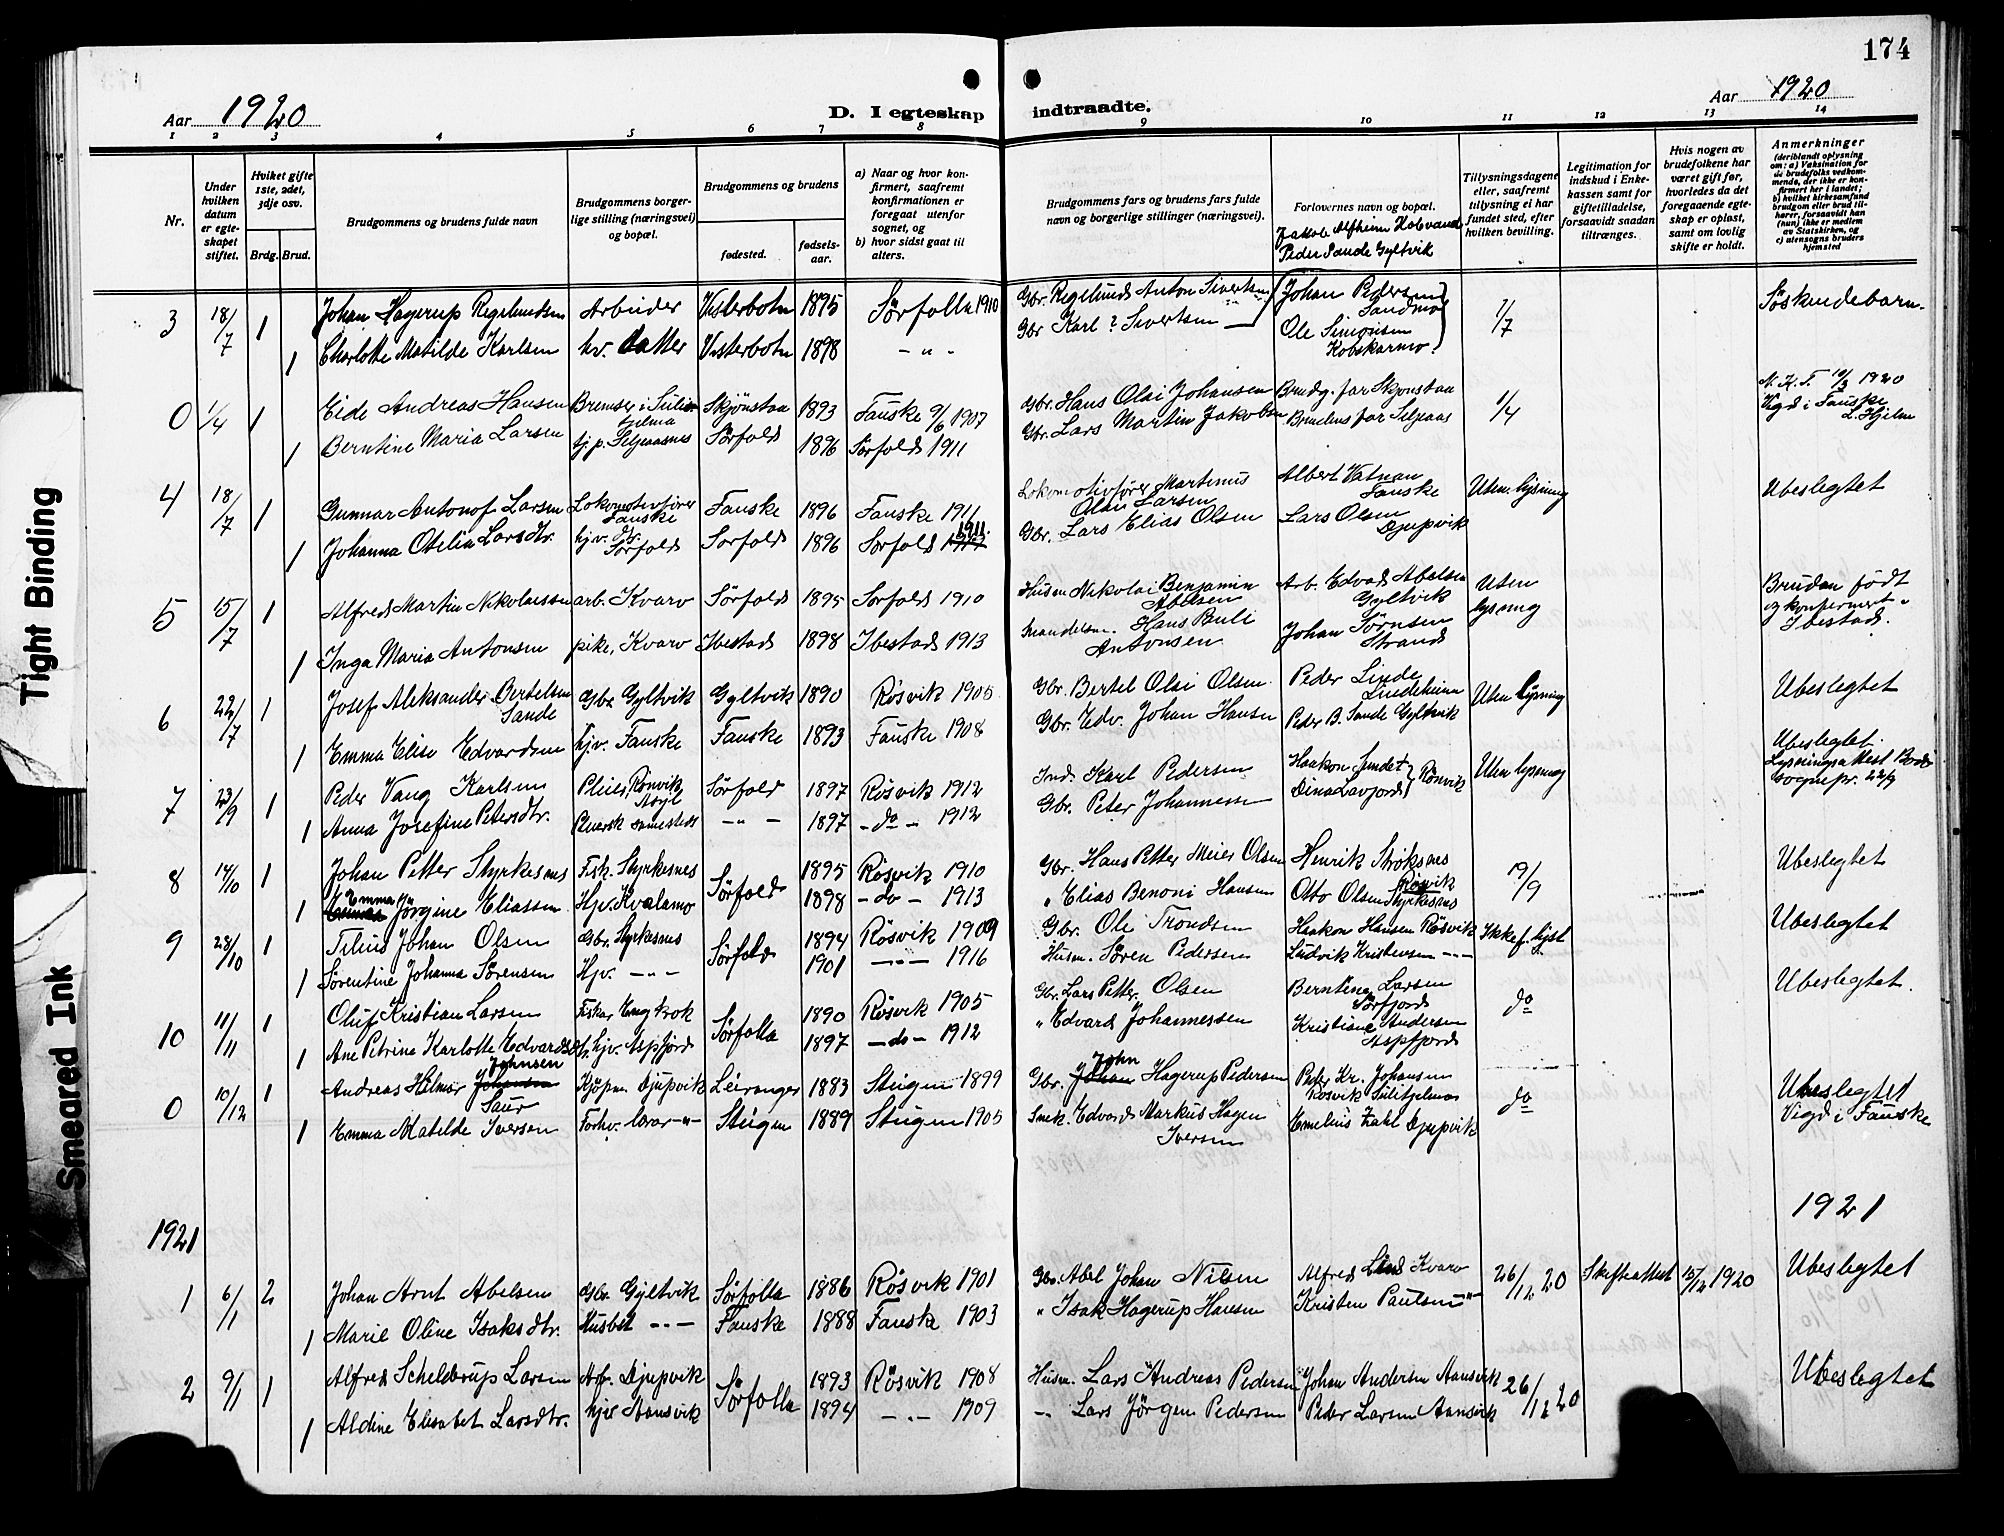 174
Aar 1920
D. I egteskap indtraadte.
Aar 1920
1 2 3 4 5 6 7 8 9 10 11 12 13 14
Nr.
Under hvilken datum er egteskapet stiftet.
Hviket gifte 1ste, 2det, 3dje osv.
Brdg. Brud.
Brudgommens og brudens fulde navn
Brudgommens borgerlige stilling (næringsvei) og bopæl.
Brudgommens og brudens
fødested.
fødselsaar.
a) Naar og hvor konfirmert, saafremt konfirmationen er foregaat utenfor sognet, og
b) hvor sidst gaat til alters.
Brudgommens fars og brudens fars fulde navn og borgerlige stillinger (næringsvei).
Forlovernes navn og bopæl.
Tillysningsdagene eller, saafremt tillysning ei har fundet sted, efter hvilken bevilling.
Legitimation for indskud i Enkekassen samt for giftetilladelse, forsaavidt saadan tiltrænges.
Hvis nogen av brudefolkene har været gift før, hvorledes da det foregaaende egteskap er opløst, samt om lovlig skifte er holdt.
Anmerkninger
(deriblandt oplysning om: a) Vaksination for de brudefolks vedkommende, der ikke er konfirmert her i landet; b) hvilket kirkesamfund brudgom eller brud tilhører, forsaavidt han (hun) ikke er medlem av Statskirken, og c) utensogns bruders hjemsted
Peder Sande Gyltvik
3 18/7 1 Johan Hagerup Regelundsen Arbeider Vesterbotn 1895 Sørfolla 1910 Gbr. Regelunds Anton Sivertsen Johan Pedersen Sandmo 1/7 Søskendebarn.
1 Charlotte Matilde Karlsen hv. datter Vesterbotn 1898 - " - Gbr Karl ? Sivertsen Ole Simonsen Kobskarmo.
0 1/4 1 Eide Andreas Hansen Bremser i Sulitjelma Skjønstaa 1893 Fauske 9/6 1907 Gbr. Hans Olai Johansen Brudg. far Skjønstaa 1/4 N.K.T. 10/3 1920
Vigd i Fauske
L. Hjelm
1 Berntine Maria Larsen tj. p. Sørfold 1896 Sørfold 1911 Gbr. Lars Martin Jakobsen Brudens far
4 18/7 1 Gunnar Antonof Larsen Lokomotivfører Fauske Fauske 1896 Fauske 1911 Lokomotivfører Martinus Olai Larsen Albert Vatnan Fauske Uten lysning Ubeslegtet
1 Johanna Otelia Larsdtr. hjv. dtr. Sørfold Sørfold 1896 Sørfold 1911 Gbr. Lars Elias Olsen Lars Olsen Djupvik
5 15/7 1 Alfred Martin Nikolaissen arb. Kvarv Sørfold 1895 Sørfold 1910 Husm Nikolai Benjamin Abelsen Arb. Edvard Abelsen Gyltvik Uten lysning Bruden født og konfirmert i Ibestad.
1 Inga Maria Antonsen pike, Kvarv Ibestad 1898 Ibestad 1913 Hans Pauli Antonsen Johan Sørnsen Strand
6 22/7 1 Josef Aleksander Bertelsen Sande Gbr. Gyltvik Gyltvik 1890 Røsvik 1905 Gbr. Bertel Olai Olsen Peder Linde Lindeheim Uten lysning Ubeslegtet
1 Emma Elise Edvardsen hjv. Fauske Fauske 1893 Fauske 1908 Gbr. Edv. Johan Hansen Peder B. Sande Gyltvik
7 23/9 1 Peder Vang Karlsen Pleier, Rønvik Asyl Sørfold 1897 Røsvik 1912 Ind. Karl Pedersen Haakon Sundet Rønvik Uten lysning Ubeslegtet.
Lysningsattest Bodø Sognepr. 22/9
1 Anna Josefine Petersdtr. Pleiersk sammesteds - " - 1897 - do - 1912 Gbr. Peter Johannessen Dina Lavjord
8 14/10 1 Johan Petter Styrkesnes Fisk. Styrkesnes Sørfold 1895 Røsvik 1910 Gbr. Hans Petter Meier Olsen Henrik Strøksnes Røsvik 19/9 Ubeslegtet
1 Emma Jørgine Eliassen Hjv. Kvalamo 1898 - do - 1913 " Elias Benoni Hansen Otto Olsen Styrkesnes
9 28/10 1 Tilius Johan Olsen Gbr. Styrkesnes Sørfold 1894 Røsvik 1909 Gbr. Ole Trondsen Haakon Hansen Røsvik Ikke f. lyst Ubeslegtet
1 Sørentine Johanna Sørensen Hjv. - " - 1901 - " - 1916 Husm. Søren Pedersen Ludvik Kristensen - " -
10 11/11 1 Oluf Kristian Larsen Fisker Engkrok Sørfolla 1890 Røsvik 1905 Gbr. Lars Petter Olsen Berntine Larsen Sørfjord do Ubeslegtet.
1 Ane Petrine Karlotte Edvardsdtr. hjv. Aspfjord 1897 - do - 1912 " Edvard Johannessen Kristiane Andersen Aspfjord
0 10/12 1 Andreas Helmer Johnsen Saur Kjøpm. Djupvik Leiranger 1883 Steigen 1899 Gbr. John Hagerup Pedersen Peter Kr. Johansen Røsvik Sulitjelma do Ubeslegtet
Vigd i Fauske
1 Emma Matilde Iversen Forhv. lærer - " - Steigen 1889 Steigen 1905 Snek. Edvard Markus Hagen Iversen Emelius Zahl Djupvik
1921
1921
1 6/1 2 Johan Arnt Abelsen Gbr. Gyltvik Sørfolla 1886 Røsvik 1901 Gbr. Abel Johan Nilsen Alfred Lind Kvarv 26/12 20 Skifteattest 15/12 1920 Ubeslegtet
1 Marie Oline Isaksdtr. Husbst - " - Fauske 1888 Fauske 1903 " Isak Hagerup Hansen Kristen Paulsen - " -
2 9/1 1 Alfred Schelderup Larsen Arb. Djupvik Sørfolla 1893 Røsvik 1908 Husm. Lars Andreas Pedersen Johan Andersen Aansvik 26/12 20 Ubeslegtet
1 Aldine Elisabet Larsdtr. hjv Aansvik 1894 - " - 1909 - " - Lars Jørgen Pedersen Peder Larsen Aansvik
Tight Binding
Smeared Ink